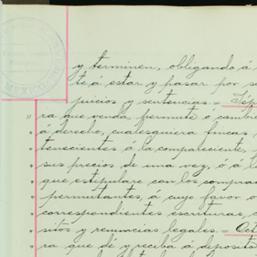 y terminen, obligando á
te á estar y pasar por s
juicios y sentencias.
ra que venda, permute ó cambie
á derecho, cualesquiera fincas
tenecientes á la compareciente,
sus precios de una vez, ó á
que estipulare con los compra
permutantes, á cuyo favor o
correspondientes escrituras
sitos y renuncias legales.
ra que dé y reciba á deposito